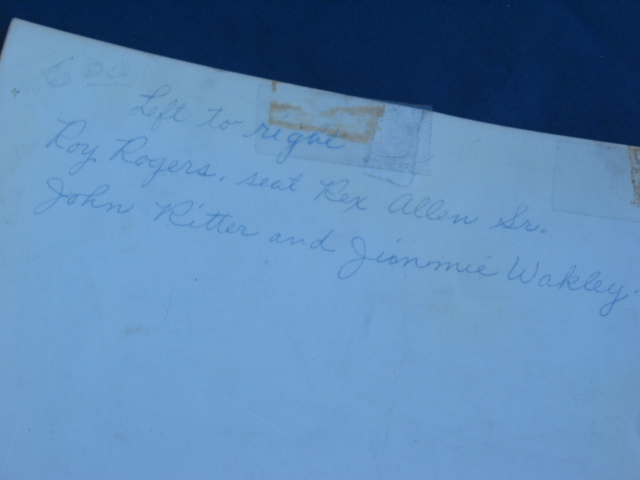 Left to right
Roy Rogers, seat Rex Allen Sr.
John Ritter and Jimmie Wakley.